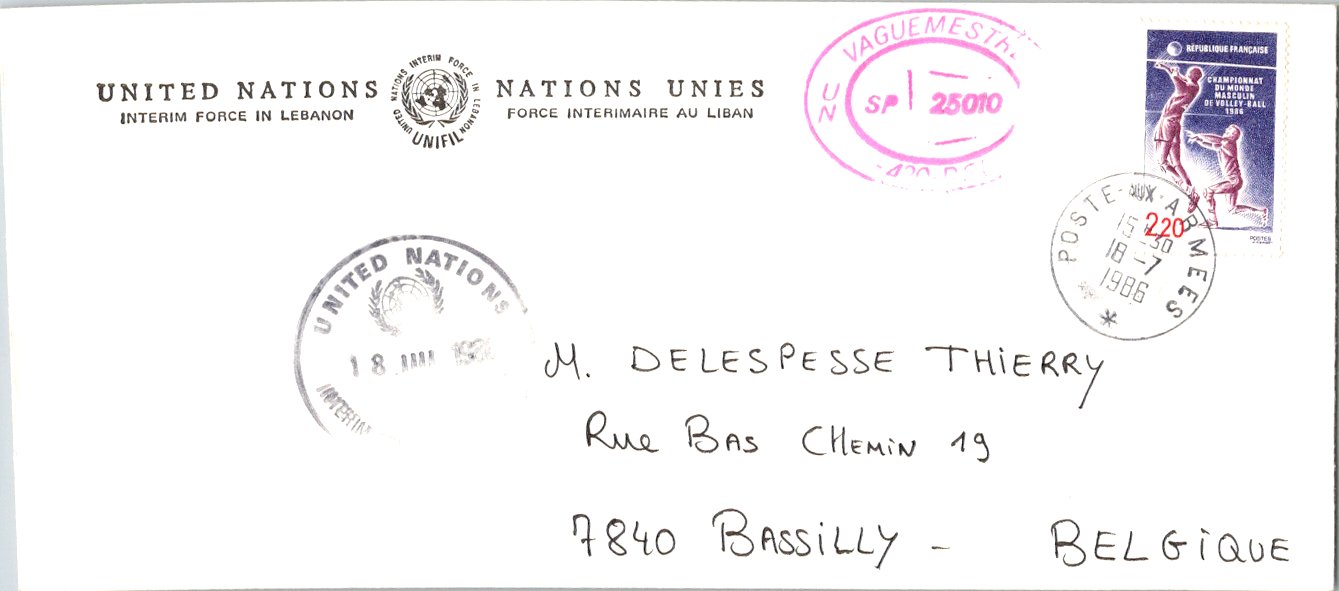 UNITED NATIONS
INTERIM FORCE IN LEBANON
UNITED NATIONS INTERIM FORCE IN LEBANON
UNIFIL
NATIONS UNIES
FORCE INTERIMAIRE AU LIBAN
VAGUEMESTRE
UN
SP 25010
RÉPUBLIQUE FRANÇAISE
CHAMPIONNAT
DU MONDE
MASCULIN
DE VOLLEY-BALL
1986
2,20
POSTES
POSTE-AUX-ARMEES
18-7
1986
UNITED NATIONS
18 JUIL 1986
INTERIM
M. DELESPESSE THIERRY
Rue BAS CHEMIN 19
7840 BASSILLY - BELGIQUE